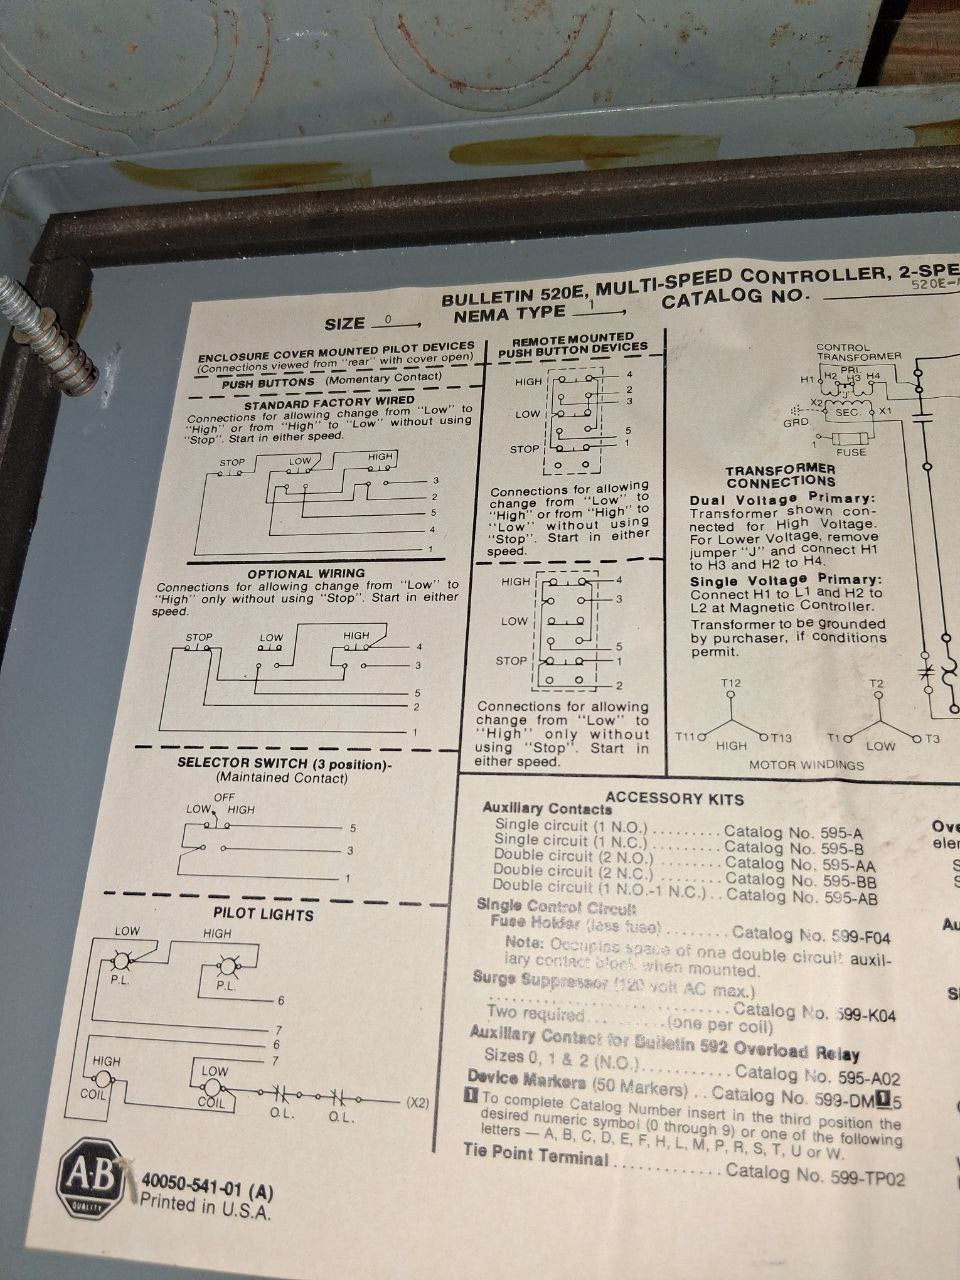 BULLETIN 520E, MULTI-SPEED CONTROLLER, 2-SPE
SIZE 0, NEMA TYPE 1, CATALOG NO. 520E-
ENCLOSURE COVER MOUNTED PILOT DEVICES
(Connections viewed from "rear" with cover open)
PUSH BUTTONS (Momentary Contact)
STANDARD FACTORY WIRED
Connections for allowing change from "Low" to
"High" or from "High" to "Low" without using
"Stop". Start in either speed.
STOP LOW HIGH
3
2
5
4
1
OPTIONAL WIRING
Connections for allowing change from "Low" to
"High" only without using "Stop". Start in either
speed.
STOP LOW HIGH
4
3
5
2
1
SELECTOR SWITCH (3 position)-
(Maintained Contact)
OFF
LOW HIGH
5
3
1
PILOT LIGHTS
LOW HIGH
P.L. P.L.
6
7
6
7
HIGH
COIL
LOW
COIL
O.L. O.L.
(X2)
A-B
QUALITY
40050-541-01 (A)
Printed in U.S.A.
REMOTE MOUNTED
PUSH BUTTON DEVICES
HIGH 4
2
3
LOW
5
STOP 1
Connections for allowing
change from "Low" to
"High" or from "High" to
"Low" without using
"Stop". Start in either
speed.
HIGH 4
3
LOW
5
STOP 1
2
Connections for allowing
change from "Low" to
"High" only without
using "Stop". Start in
either speed.
CONTROL
TRANSFORMER
PRI.
H1 H2 H3 H4
X2 SEC. X1
GRD.
1
FUSE
TRANSFORMER
CONNECTIONS
Dual Voltage Primary:
Transformer shown con-
nected for High Voltage.
For Lower Voltage, remove
jumper "J" and connect H1
to H3 and H2 to H4.
Single Voltage Primary:
Connect H1 to L1 and H2 to
L2 at Magnetic Controller.
Transformer to be grounded
by purchaser, if conditions
permit.
T12 T2
T11 T13 T1 T3
HIGH LOW
MOTOR WINDINGS
ACCESSORY KITS
Auxiliary Contacts
Single circuit (1 N.O.) ......... Catalog No. 595-A
Single circuit (1 N.C.) ......... Catalog No. 595-B
Double circuit (2 N.O.) ........ Catalog No. 595-AA
Double circuit (2 N.C.) ........ Catalog No. 595-BB
Double circuit (1 N.O.-1 N.C.) .. Catalog No. 595-AB
Single Control Circuit
Fuse Holder (less fuse) ......... Catalog No. 599-F04
Note: Occupies space of one double circuit auxil-
iary contact block when mounted.
Surge Suppressor (120 volt AC max.)
............................ Catalog No. 599-K04
Two required .......... (one per coil)
Auxiliary Contact for Bulletin 592 Overload Relay
Sizes 0, 1 & 2 (N.O.) ........... Catalog No. 595-A02
Device Markers (50 Markers) .. Catalog No. 599-DM1 5
1 To complete Catalog Number insert in the third position the
desired numeric symbol (0 through 9) or one of the following
letters — A, B, C, D, E, F, H, L, M, P, R, S, T, U or W.
Tie Point Terminal ............. Catalog No. 599-TP02
Ove
eler
S
S
Au